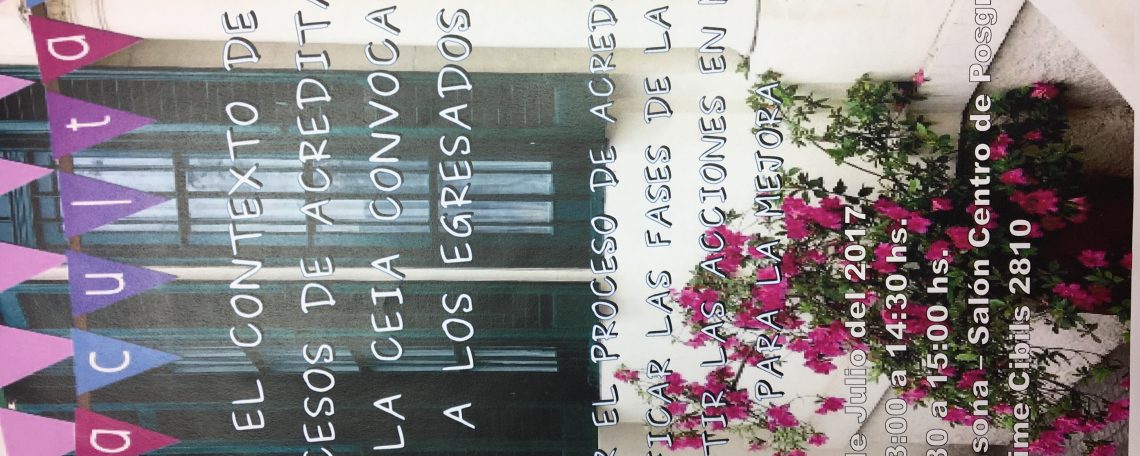 aculta
EL CONTEXTO DE
CESOS DE ACREDITA
LA CEIA CONVOCA
A LOS EGRESADOS
R EL PROCESO DE ACREDI
ICAR LAS FASES DE LA
TIR LAS ACCIONES EN
PARA LA MEJORA
de Julio del 2017
3:00 a 14:30 hs.
30 a 15:00 hs.
sona – Salón Centro de Posgr
ime Cibils 2810